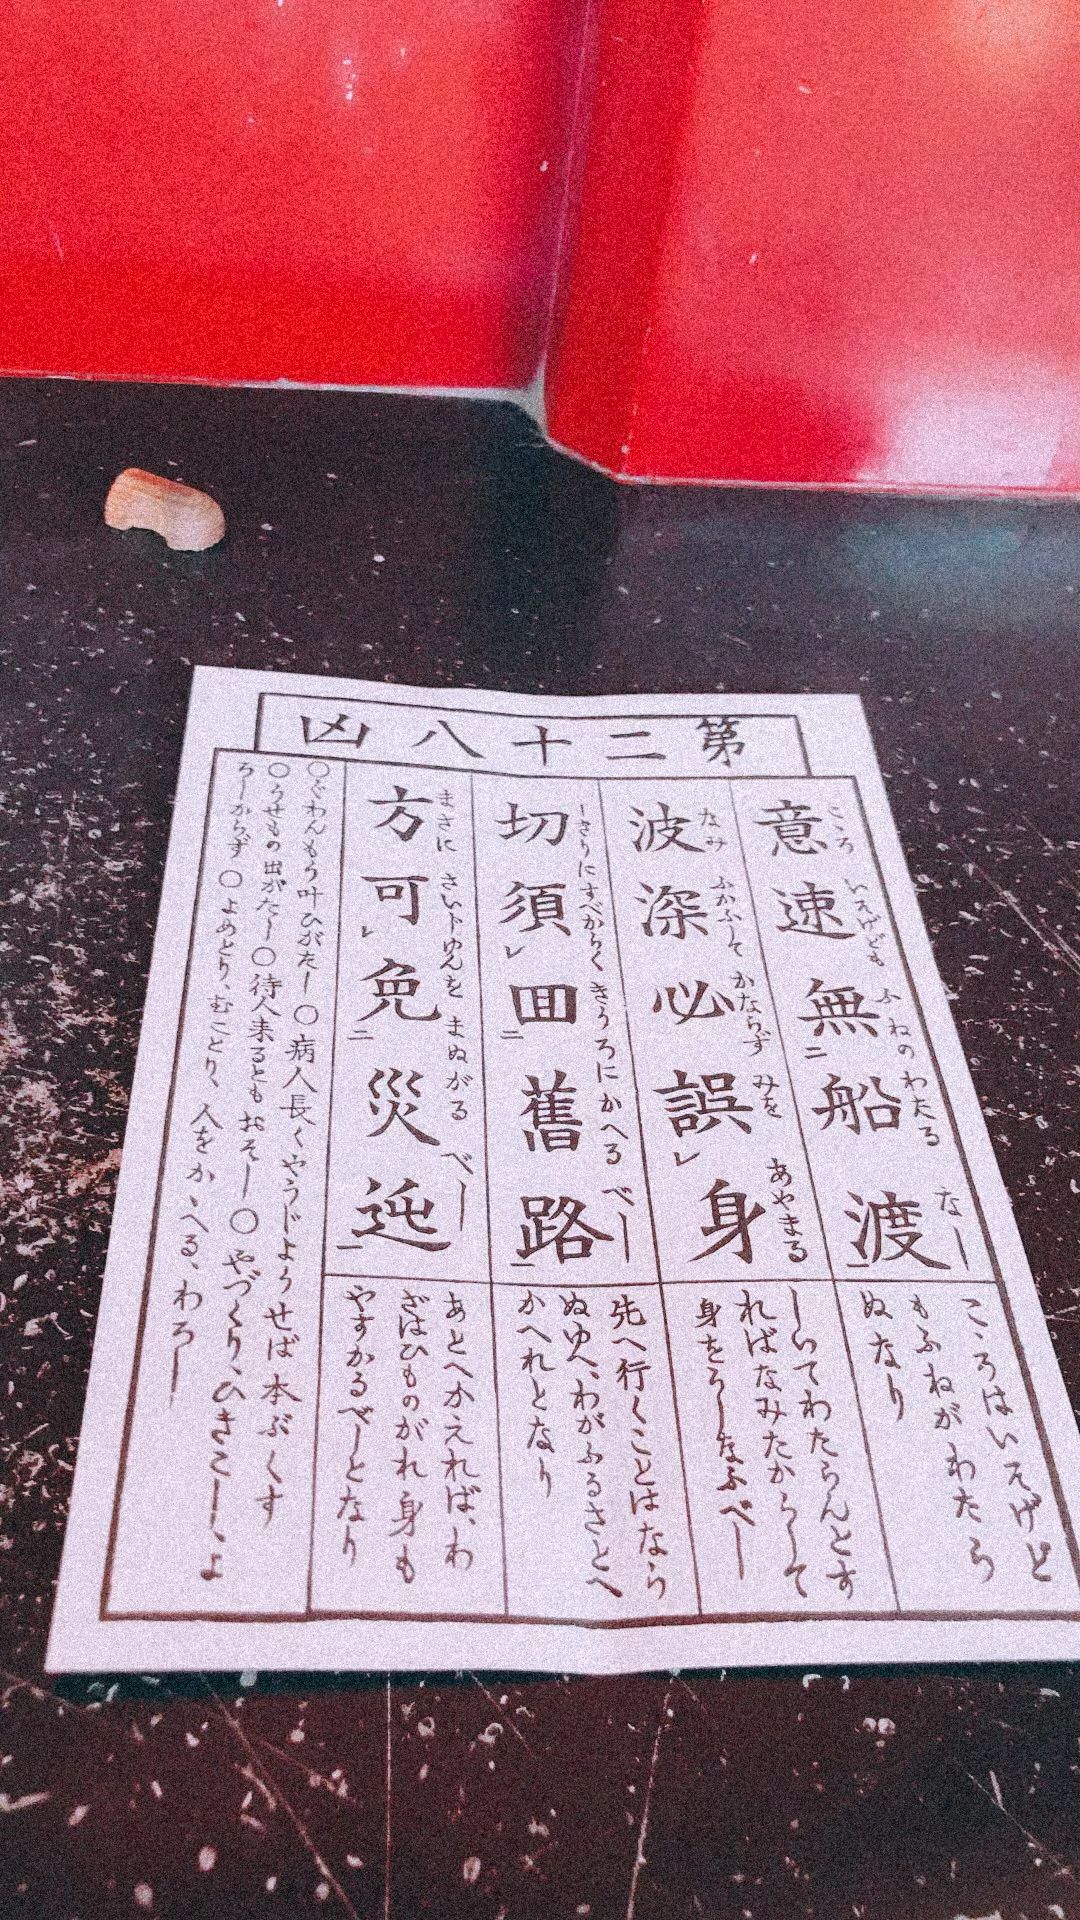 第二十八凶
意速無船渡
こゝろ いそげども ふねのわたる なし
こゝろはいそげど
もふねがわたら
ぬなり
波深必誤身
なみ ふかふして かならず みを あやまる
しいてわたらんとす
ればなみたかくして
身をうしなふべし
切須回舊路
しきりにすべからく きうろにかへる べし
先へ行くことはなら
ぬゆへ、わがふるさとへ
かへれとなり
方可免災迍
まさに さいトゆんを まぬがる べし
あとへかえれば、わ
ざはひものがれ身も
やすかるべしとなり
○ぐわんもう叶ひがたし○病人長くやうじようせば本ぶくす
○うせもの出がたし○待人来るともおそし○やづくり、ひきこしゝよ
ろしからず○よめとり、むことり、人をかゝへる、わろし